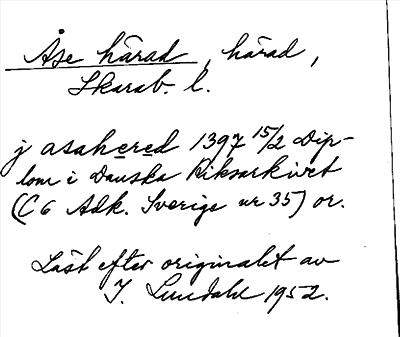 Åse härad, härad,
Skarab. l.
j asahered 1397 15/2 Dip-
lom i Danska Riksarkivet
(C6 Adk. Sverige nr 35) or.
Läst efter originalet av
I. Lundahl 1952.